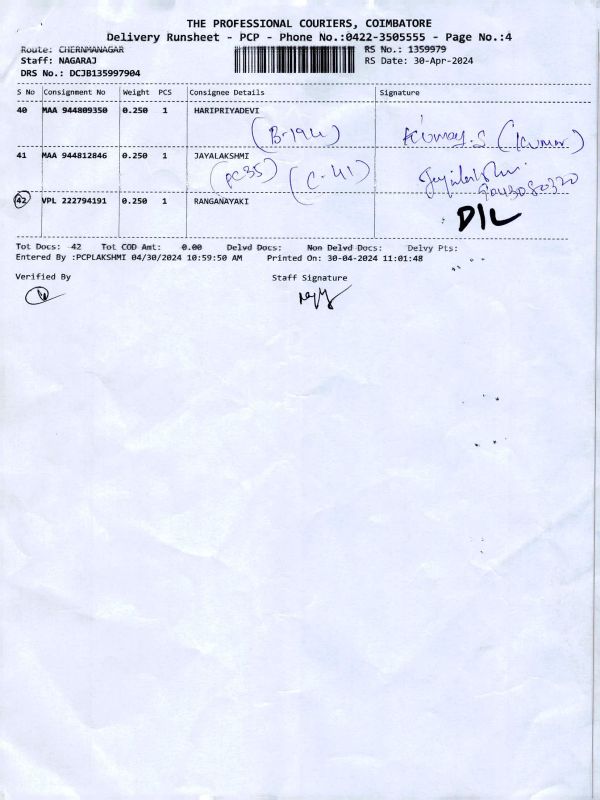 THE PROFESSIONAL COURIERS, COIMBATORE
Delivery Runsheet - PCP - Phone No.:0422-3505555 - Page No.:4
Route: CHERNMANAGAR RS No.: 1359979
Staff: NAGARAJ RS Date: 30-Apr-2024
DRS No.: DCJB135997904
S No Consignment No Weight PCS Consignee Details Signature
40 MAA 944809350 0.250 1 HARIPRIYADEVI
(B-194) Kumar.S (Kumar)
41 MAA 944812846 0.250 1 JAYALAKSHMI
(PC35) (C-41)
42 VPL 222794191 0.250 1 RANGANAYAKI
D/L
Tot Docs: 42 Tot COD Amt: 0.00 Delvd Docs: Non Delvd Docs: Delvy Pts:
Entered By :PCPLAKSHMI 04/30/2024 10:59:50 AM Printed On: 30-04-2024 11:01:48
Verified By Staff Signature